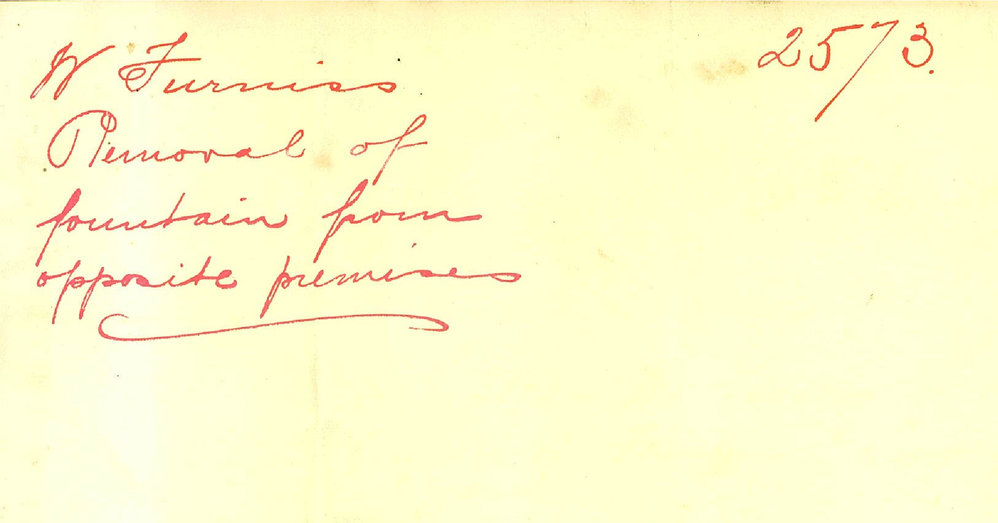 W Furniss
2573.
Removal of
fountain from
opposite premises